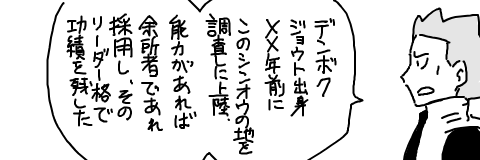 デンボク
ジョウト出身
××年前に
このシンオウの地を
調査に上陸、
能力があれば
余所者であれ
採用し、その
リーダー格で
功績を残した